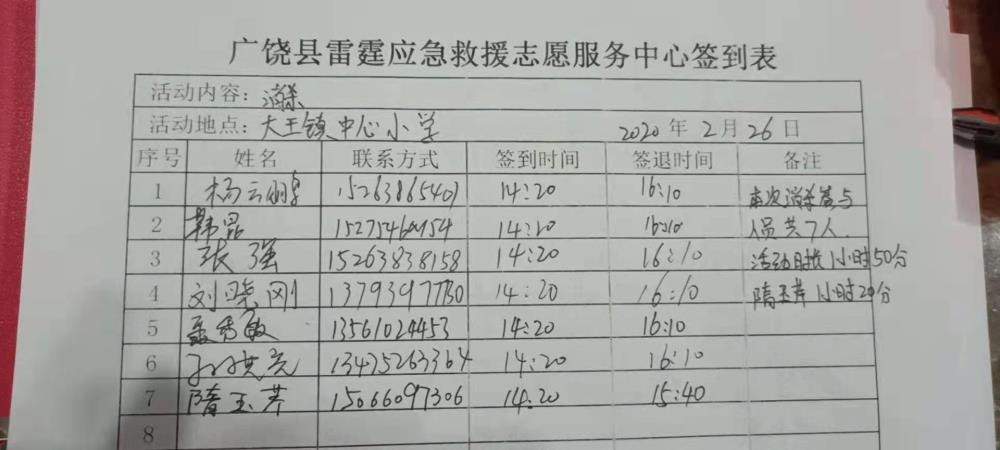 广饶县雷霆应急救援志愿服务中心签到表
活动内容：消杀
活动地点：大王镇中心小学 2020年2月26日
序号 姓名 联系方式 签到时间 签退时间 备注
1 杨云鹏 15263865401 14:20 16:10 本次消杀参与
2 韩昆 14:20 16:10 人员共7人.
3 张强 15263838158 14:20 16:10 活动时长1小时50分
4 刘晓刚 14:20 16:10 隋玉芹1小时20分
5 聂秀敏 13561024453 14:20 16:10
6 13475263364 14:20 16:10
7 隋玉芹 15066097306 14:20 15:40
8